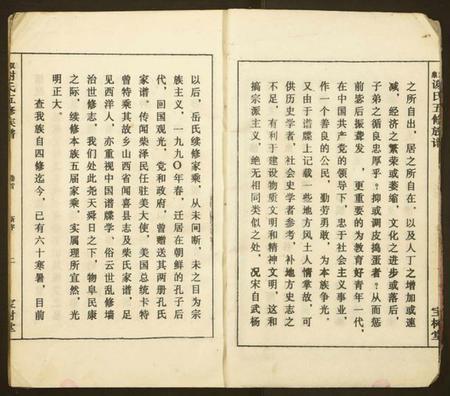 謝氏五修族譜
之所自出，居之所自在，以及人丁之增加或速
减，经济之繁荣或萎缩，文化之进步或落后，
子弟之循良忠厚乎？抑或调皮捣蛋者？从而惩
前毖后振聋发，更重要的为教育好青年一代，
在中国共产党的领导下，忠于社会主义事业，
作一个善良的公民，勤劳勇敢，为本族争光。
又由于谱牒上记载一些地方风土人情掌故，可
供历史学者，社会史学者参考，补地方史志之
不足，有利于建设物质文明和精神文明，这和
搞宗派主义，绝无相同类似之处，况宋自武杨
宝树堂
以后，岳氏续修家乘，从未间断，未之目为宗
族主义，一九九〇年春，迁居在朝鲜的孔子后
代，回国观光，党和政府，曾赠送其两册孔氏
家谱。传闻柴泽民任驻美大使，美国总统卡特
曾特乘其故乡山西省闻喜县志及柴氏家谱，足
见西洋人，亦重视中国谱牒学，俗云世乱修墙
治世修志，我们处此尧天舜日之下，物阜民康
之际，续修本族五届家乘，实属理所宜然，光
明正大。
查我族自四修迄今，已有六十寒暑，目前
謝氏五修族譜
卷首
二
宝树堂